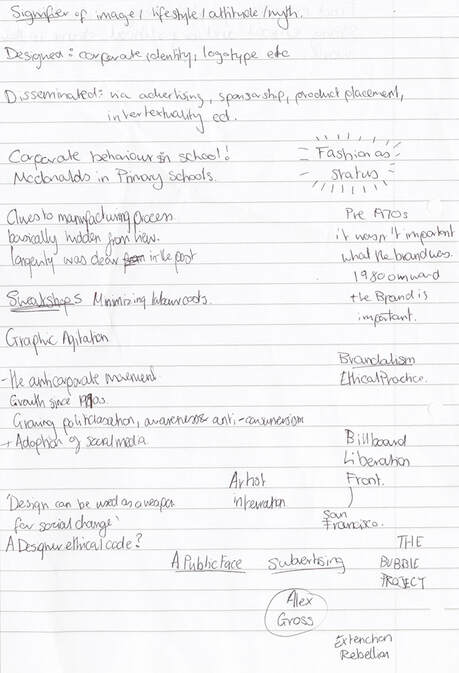 Signifier of image / lifestyle / attitude / myth.
Designed: corporate identity, logotype etc
Disseminated: via advertising, sponsorship, product placement,
intertextuality ect.
Corporate behaviour in school!
Mcdonalds in Primary Schools.
Fashion as
status
Clues to manufacturing process
basically hidden from view.
longevity was clear in the past
Pre 1970s
it wasn't important
what the brand was.
1980 onward
the Brand is
important.
Sweatshops Minimizing labour costs.
Graphic Agitation
Brandalism
Ethical Practice.
- The anti corporate movement
Growth since 1990s.
Growing politicisation, awareness & anti-consumerism
+ Adoption of social media
Billboard
Liberation
Front.
San
Francisco.
Artist
intervention
'Design can be used as a weapon
for social change'
A Designer ethical code?
A Public Face
Subvertising
THE
BUBBLE
PROJECT
Alex
Gross
Extinction
Rebellion